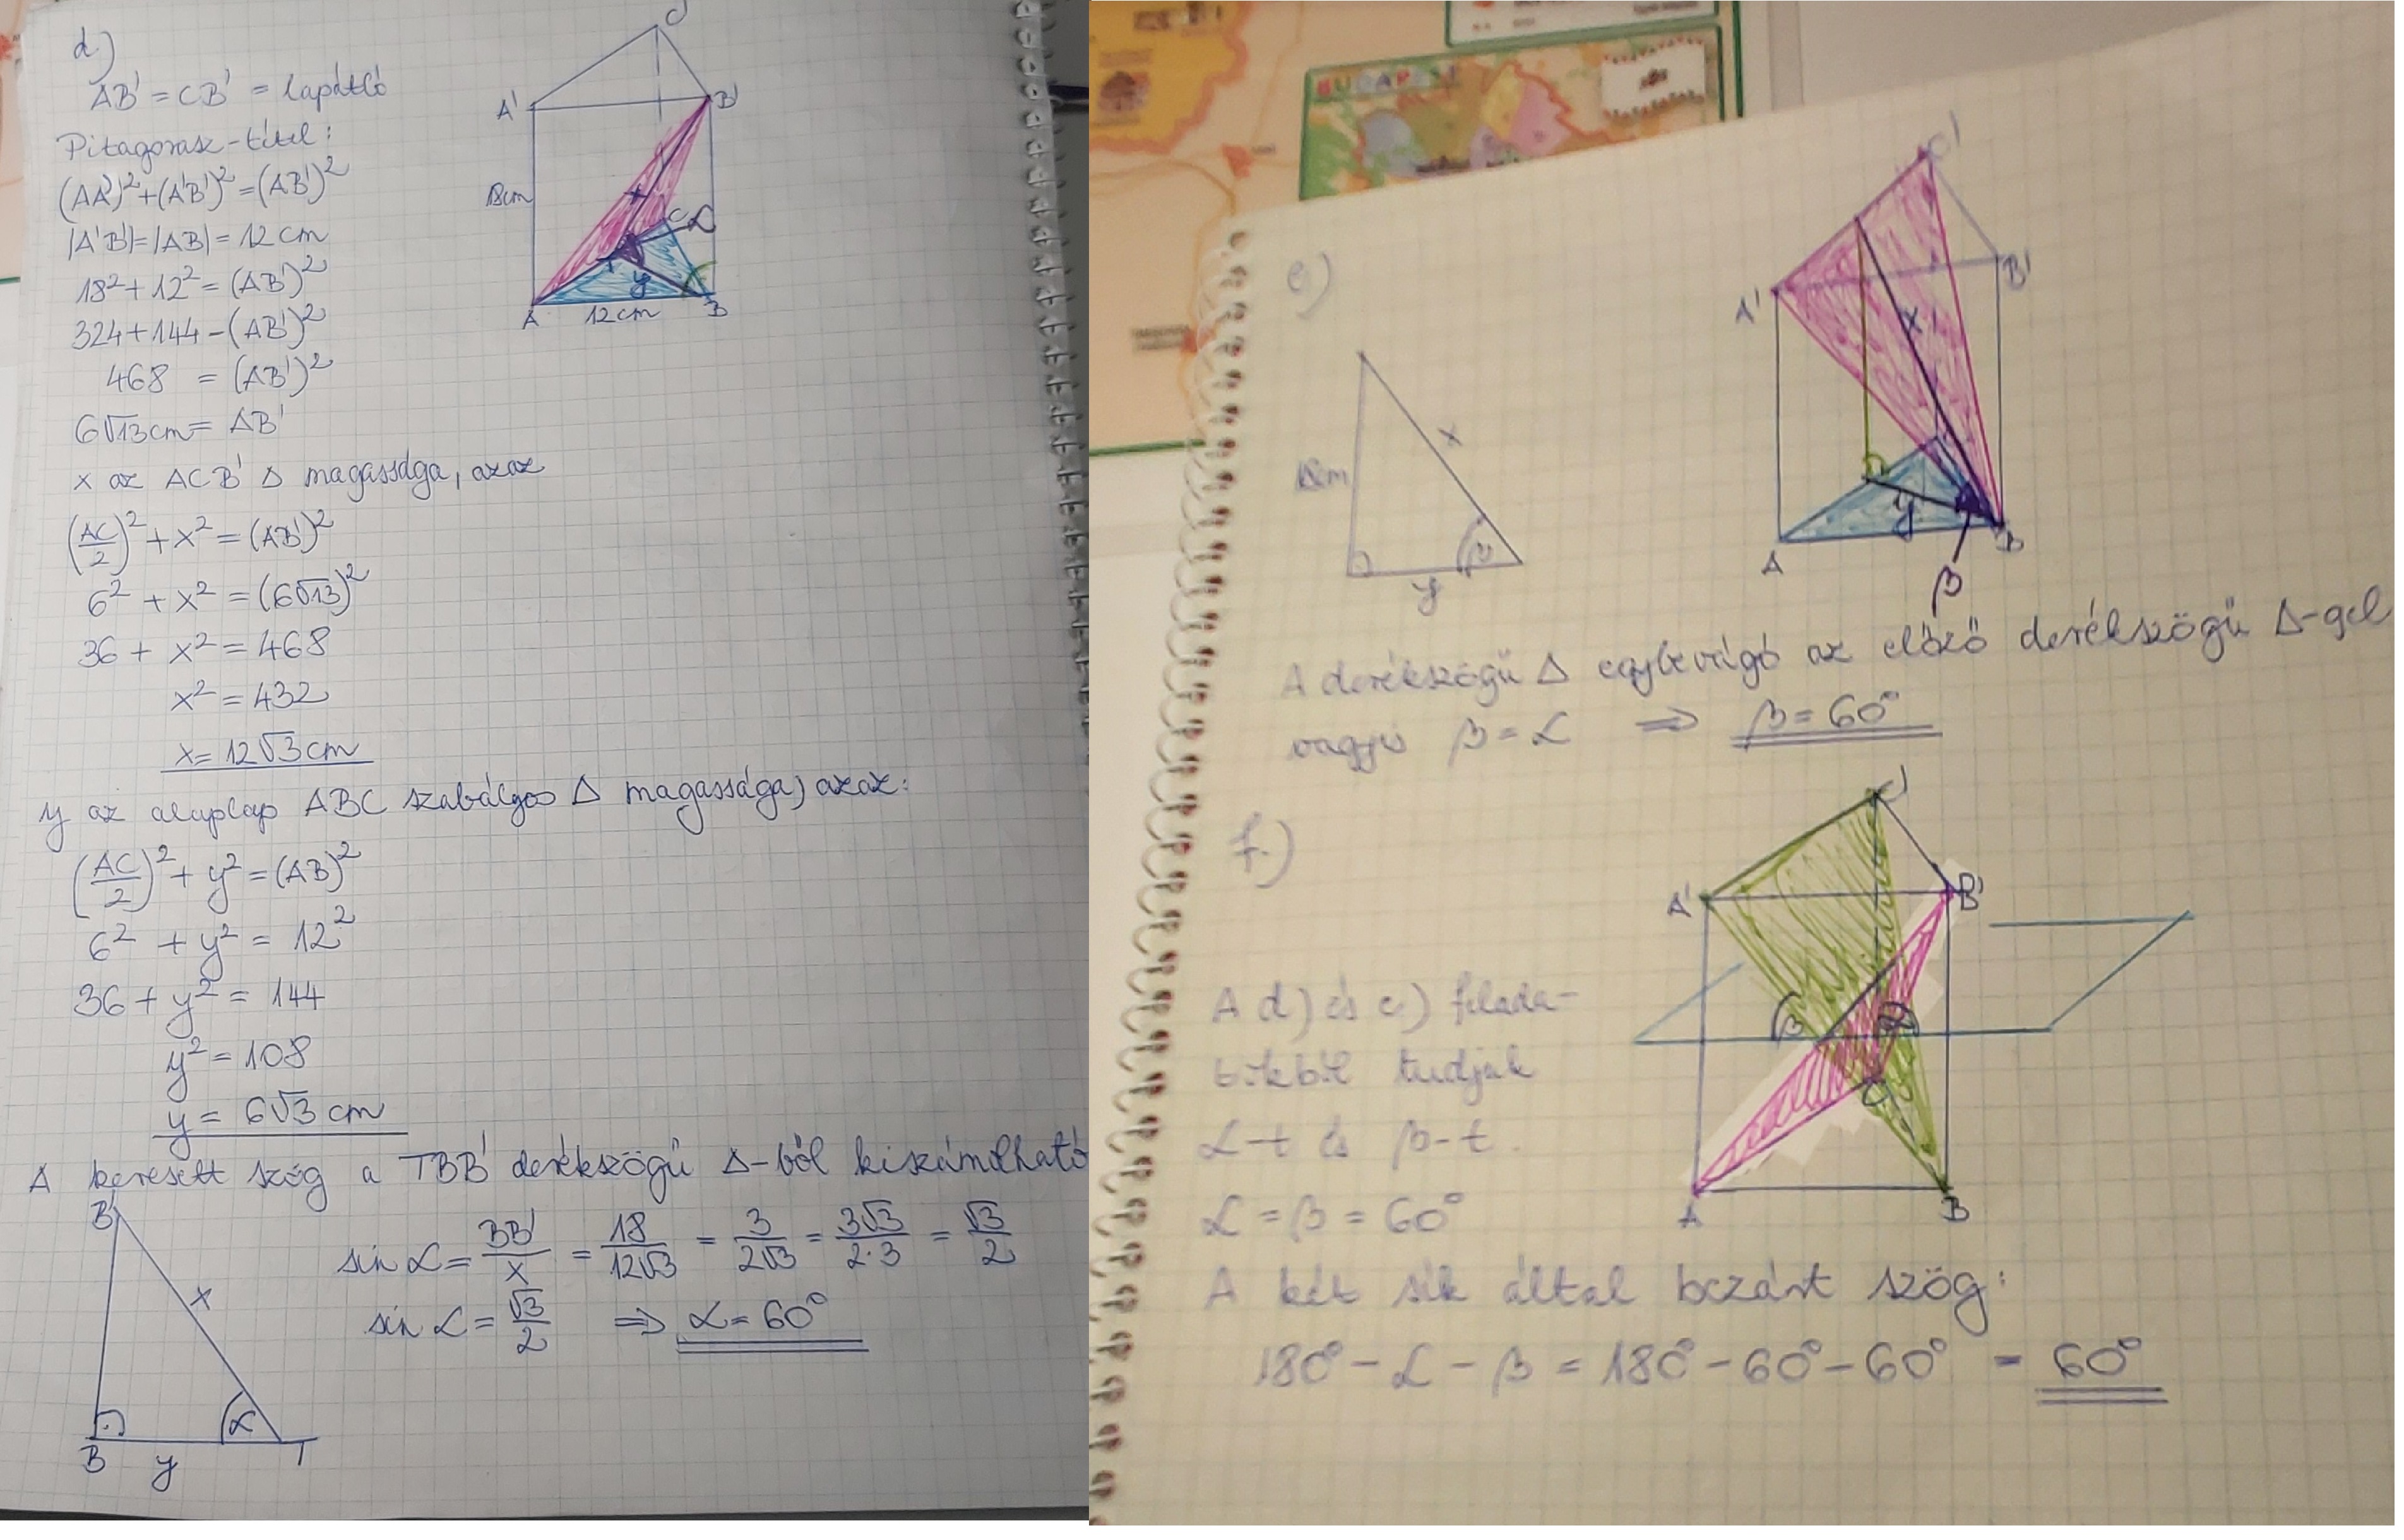 d)
AB' = CB' = lapátló
Pitagorasz-tétel:
(AA')² + (A'B')² = (AB')²
|A'B'| = |AB| = 12 cm
18² + 12² = (AB')²
324 + 144 = (AB')²
468 = (AB')²
6√13 cm = AB'
x az ACB' Δ magassága, azaz
(AC/2)² + x² = (AB')²
6² + x² = (6√13)²
36 + x² = 468
x² = 432
x = 12√3 cm
y az alaplap ABC szabályos Δ magassága, azaz:
(AC/2)² + y² = (AB)²
6² + y² = 12²
36 + y² = 144
y² = 108
y = 6√3 cm
A keresett szög a TBB' derékszögű Δ-ből kiszámolható
sin α = BB'/x = 18/12√3 = 3/2√3 = 3√3/2·3 = √3/2
sin α = √3/2 ⇒ α = 60°
B'
x
α
B y T
C'
A' B'
18cm
x
C α
T y
A 12cm B
BUDAPEST
e)
18cm
x
β
y
C'
A' B'
x
y
A B
β
A derékszögű Δ egybevágó az előző derékszögű Δ-gel
vagyis β = α ⇒ β = 60°
f.)
C'
A' B'
β α
C
A B
A d) és e) felada-
tokból tudjuk
α-t és β-t.
α = β = 60°
A két sík által bezárt szög:
180° - α - β = 180° - 60° - 60° = 60°